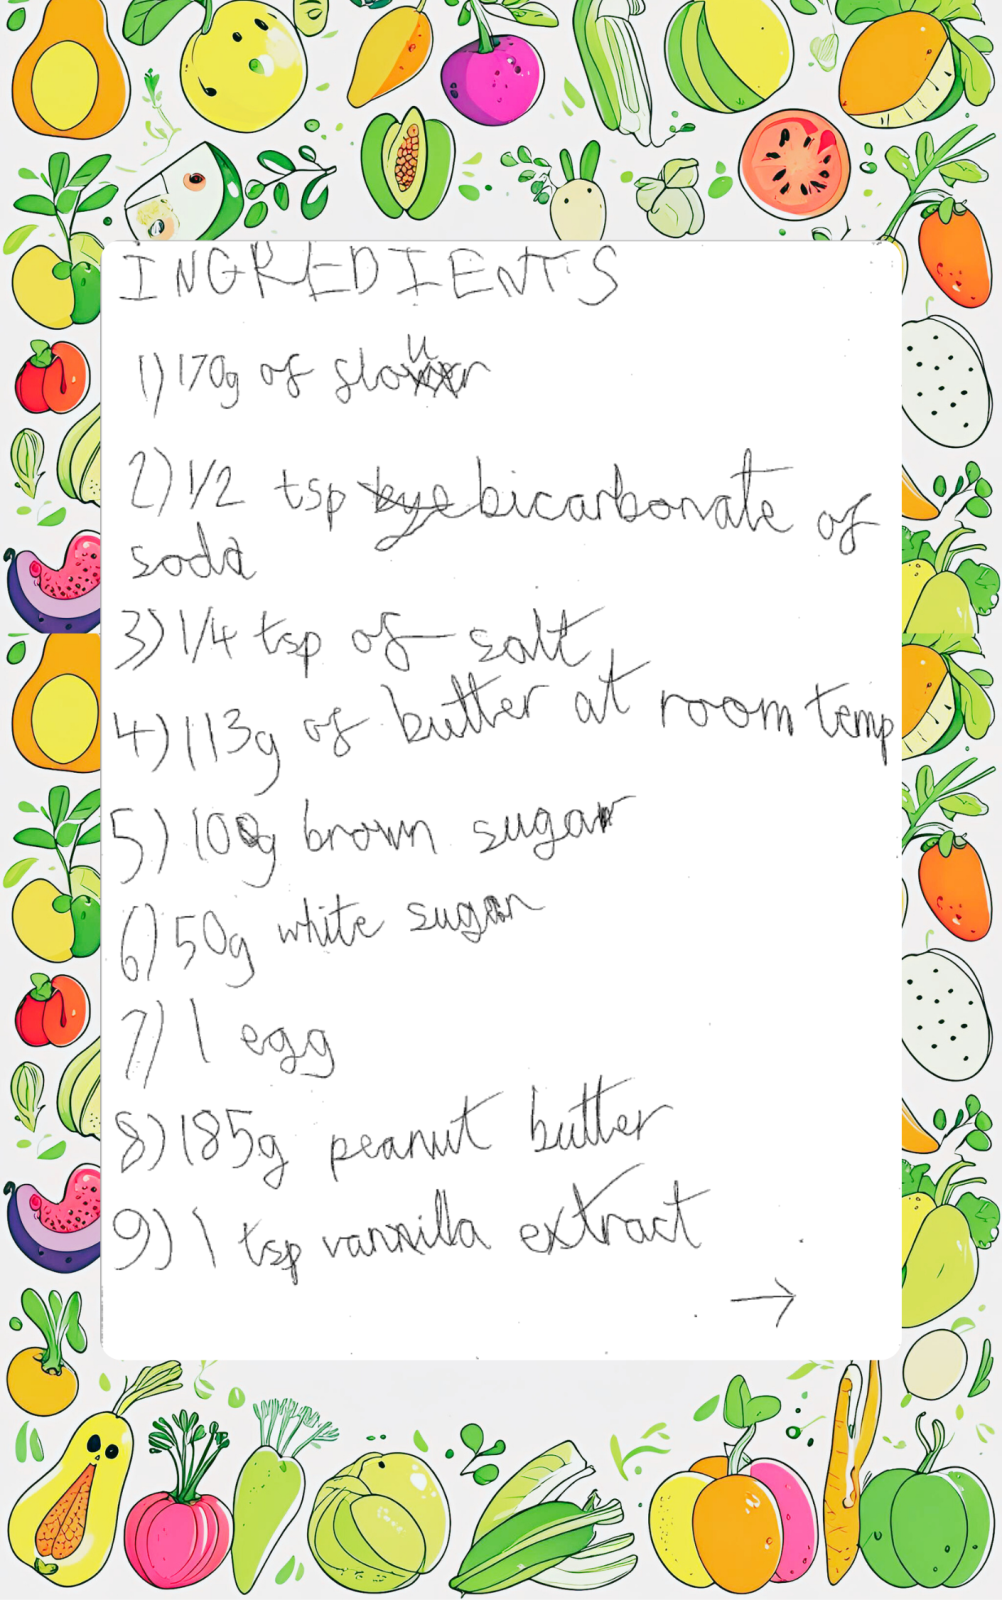 INGREDIENTS
1) 170g of flour
2) 1/2 tsp bicarbonate of
soda
3) 1/4 tsp of salt
4) 113g of butter at room temp
5) 100g brown sugar
6) 50g white sugar
7) 1 egg
8) 185g peanut butter
9) 1 tsp vannilla extract
→